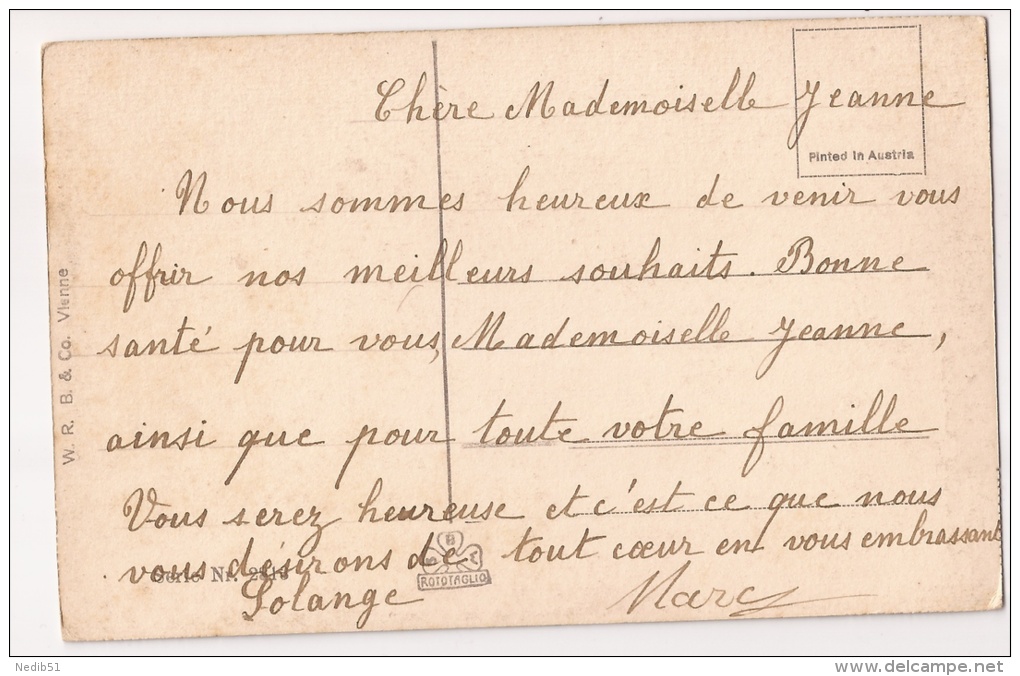 Chère Mademoiselle Jeanne
Pinted in Austria
Nous sommes heureux de venir vous
offrir nos meilleurs souhaits. Bonne
santé pour vous, Mademoiselle Jeanne,
ainsi que pour toute votre famille
Vous serez heureuse et c'est ce que nous
vous désirons de tout cœur en vous embrassant
Solange Marc
W. R. B. & Co. Vienne
Serie Nr.
W R B
ROTOTAGLIO
Nedib51
www.delcampe.net